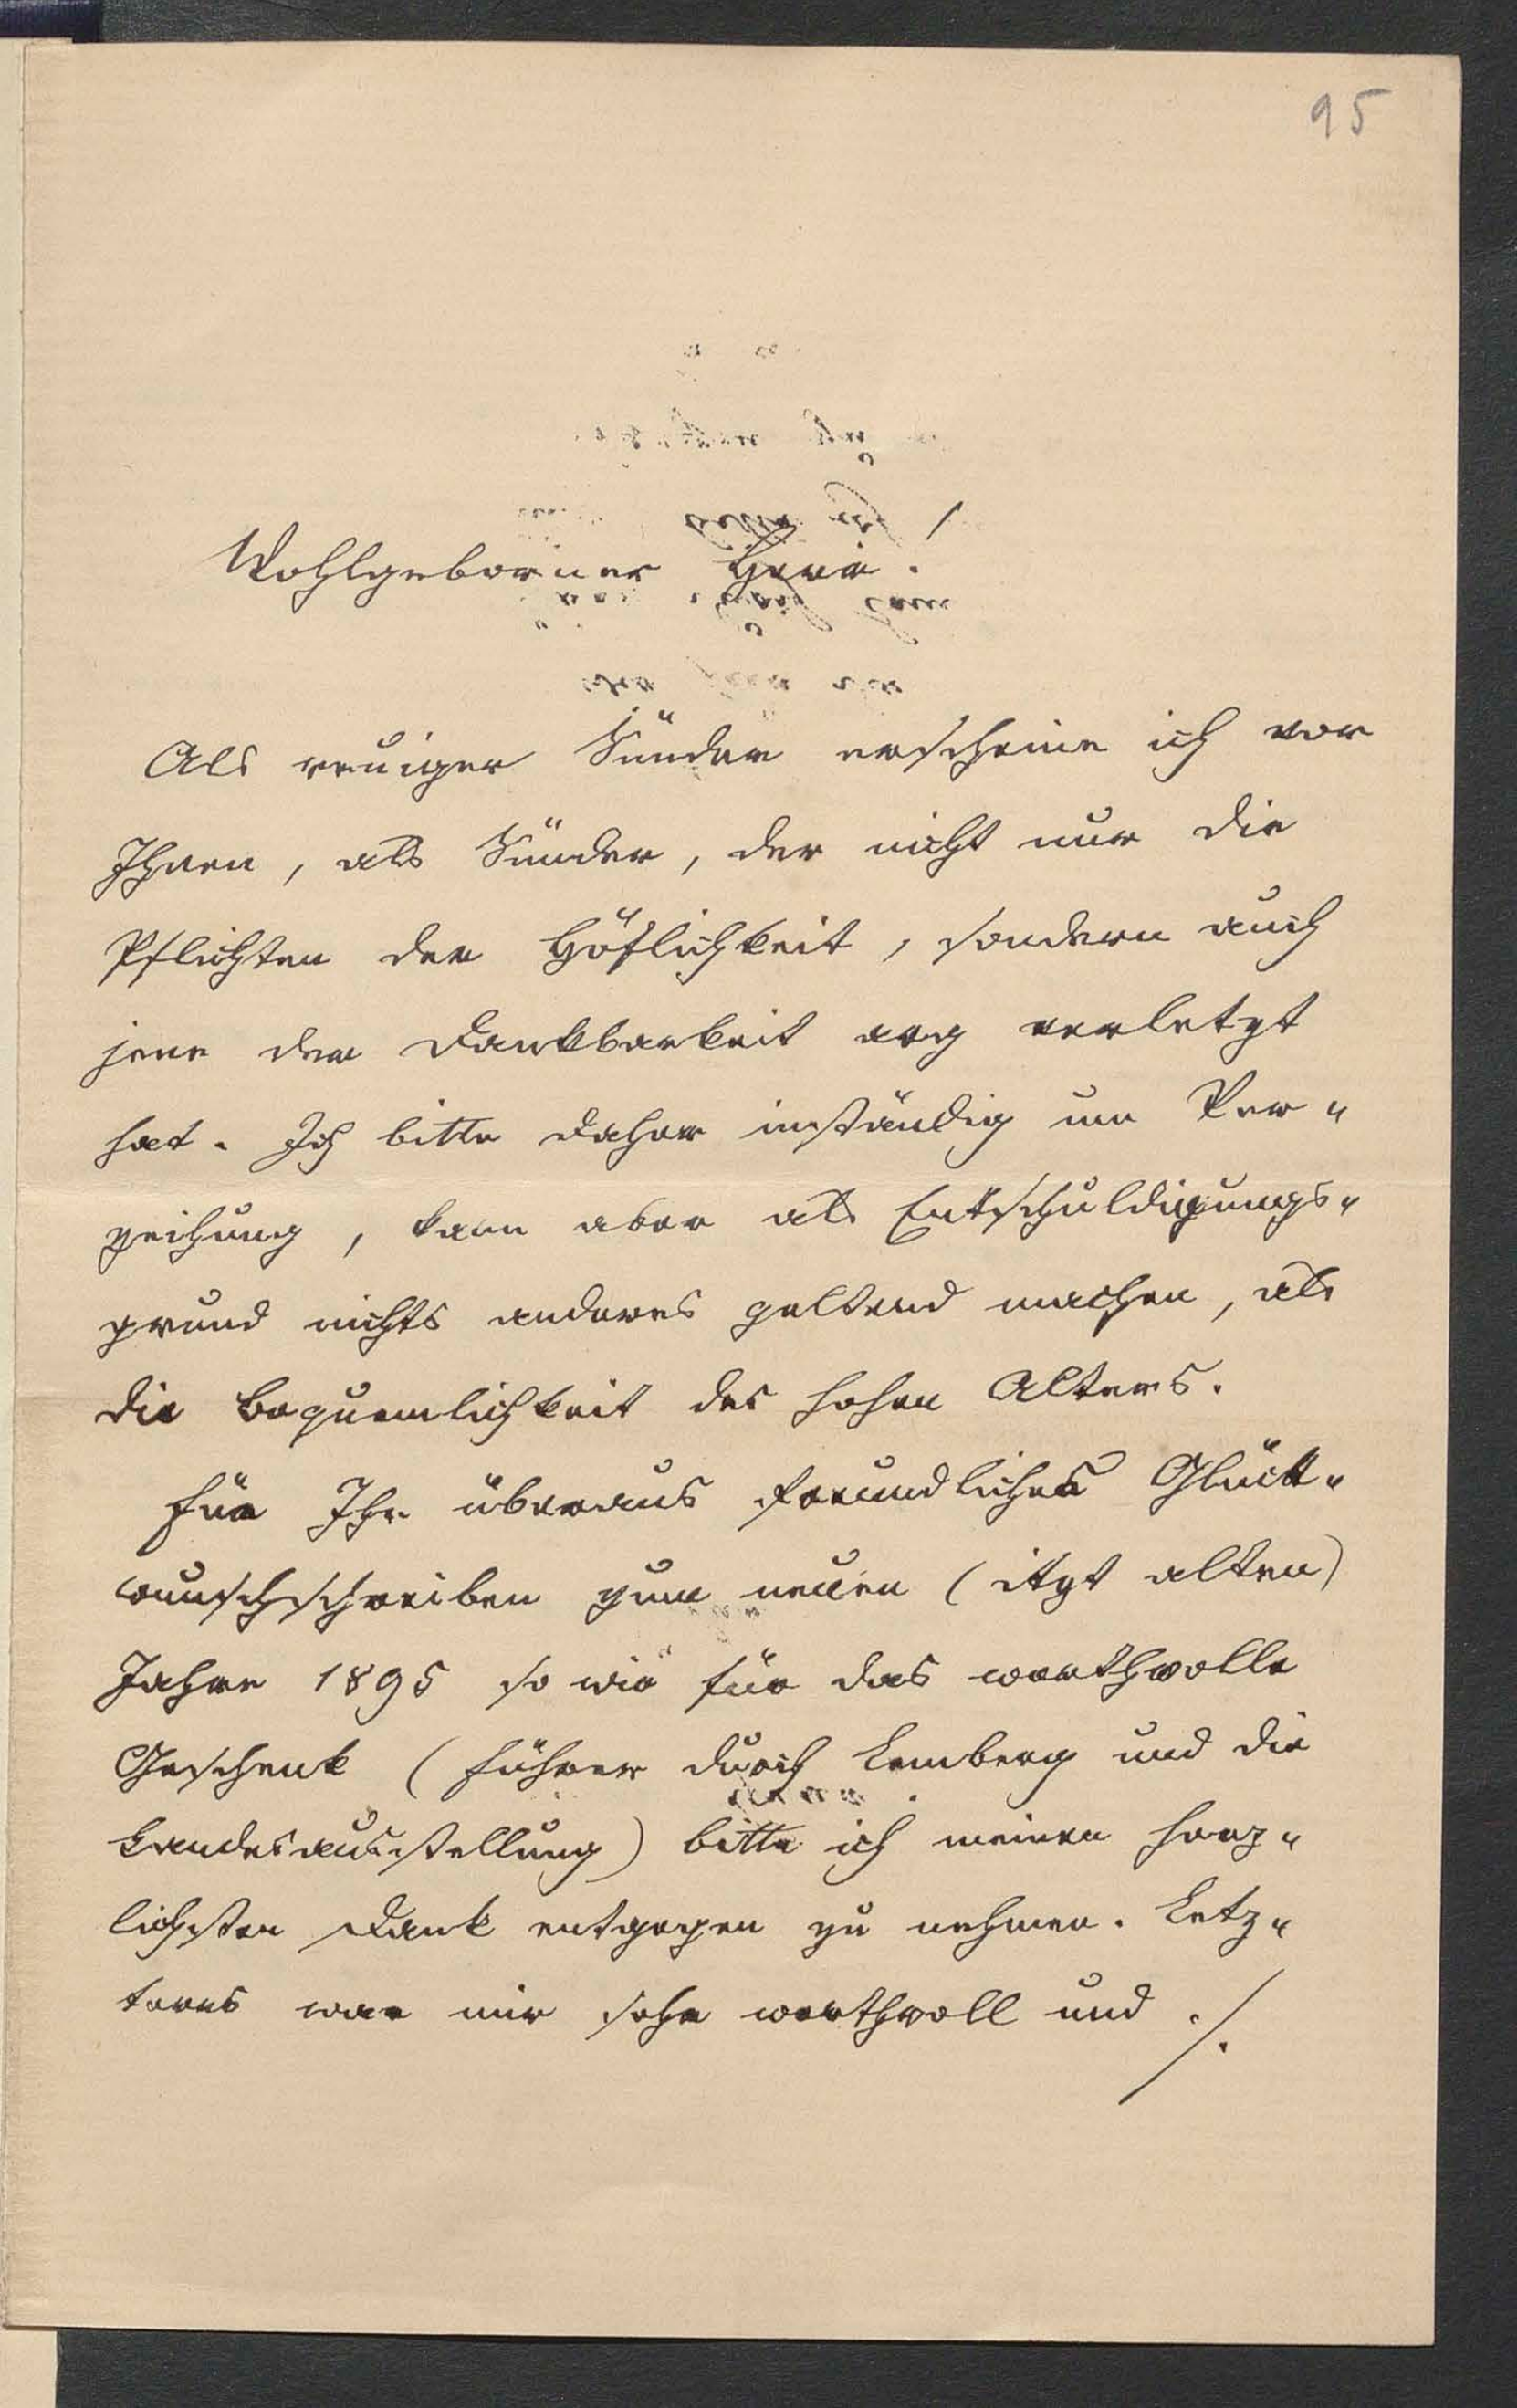 95
Wohlgeborner Herr!
Als reuiger Sünder erscheine ich vor
Ihnen, als Sünder, der nicht nur die
Pflichten der Höflichkeit, sondern auch
jene der Dankbarkeit arg verletzt
hat. Ich bitte daher inständig um Ver-
zeihung, kann aber als Entschuldigungs-
grund nichts anderes geltend machen, als
die Bequemlichkeit des hohen Alters.
Für Ihr überaus freundliches Glück-
wunschschreiben zum neuen (itzt alten)
Jahre 1895 so wie für das werthvolle
Geschenk (Führer durch Lemberg und die
Landesausstellung) bitte ich meinen herz-
lichsten Dank entgegen zu nehmen. Letz-
teres war mir sehr werthvoll und ./.